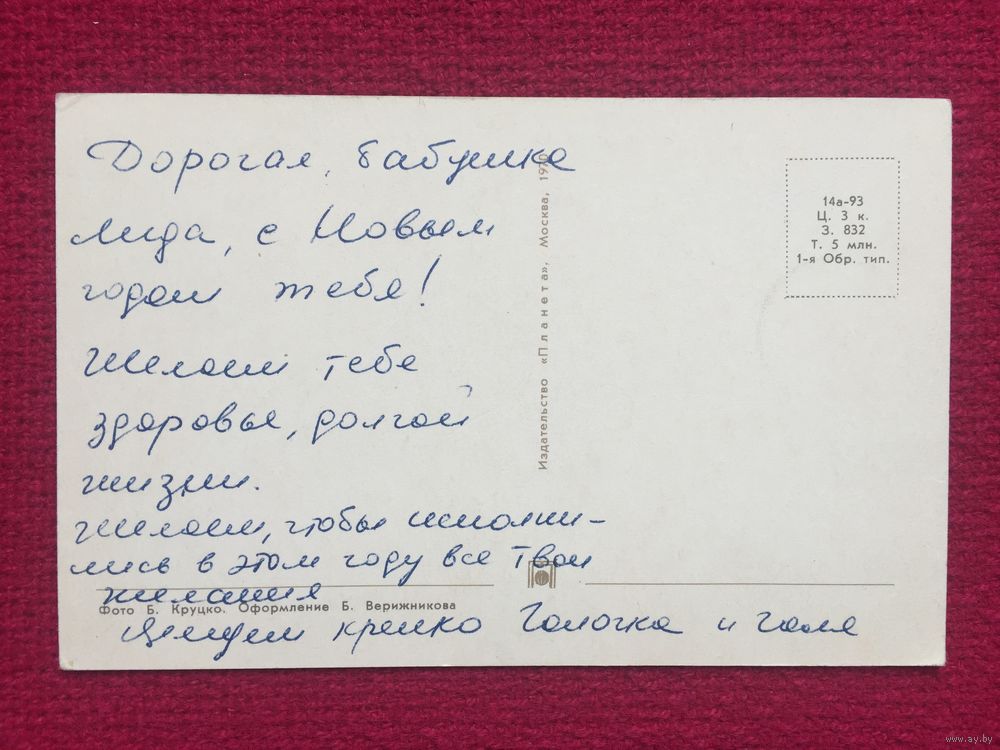 Дорогая, бабушка
Лида, с Новым
годом тебя!
Желаем тебе
здоровья, долгой
жизни.
Желаем, чтобы исполни-
лись в этом году все твои
желания
Целуем крепко Галочка и Галя
Фото Б. Круцко. Оформление Б. Верижникова
Издательство «Планета», Москва, 1970
14а-93
Ц. 3 к.
З. 832
Т. 5 млн.
1-я Обр. тип.
www.ay.by